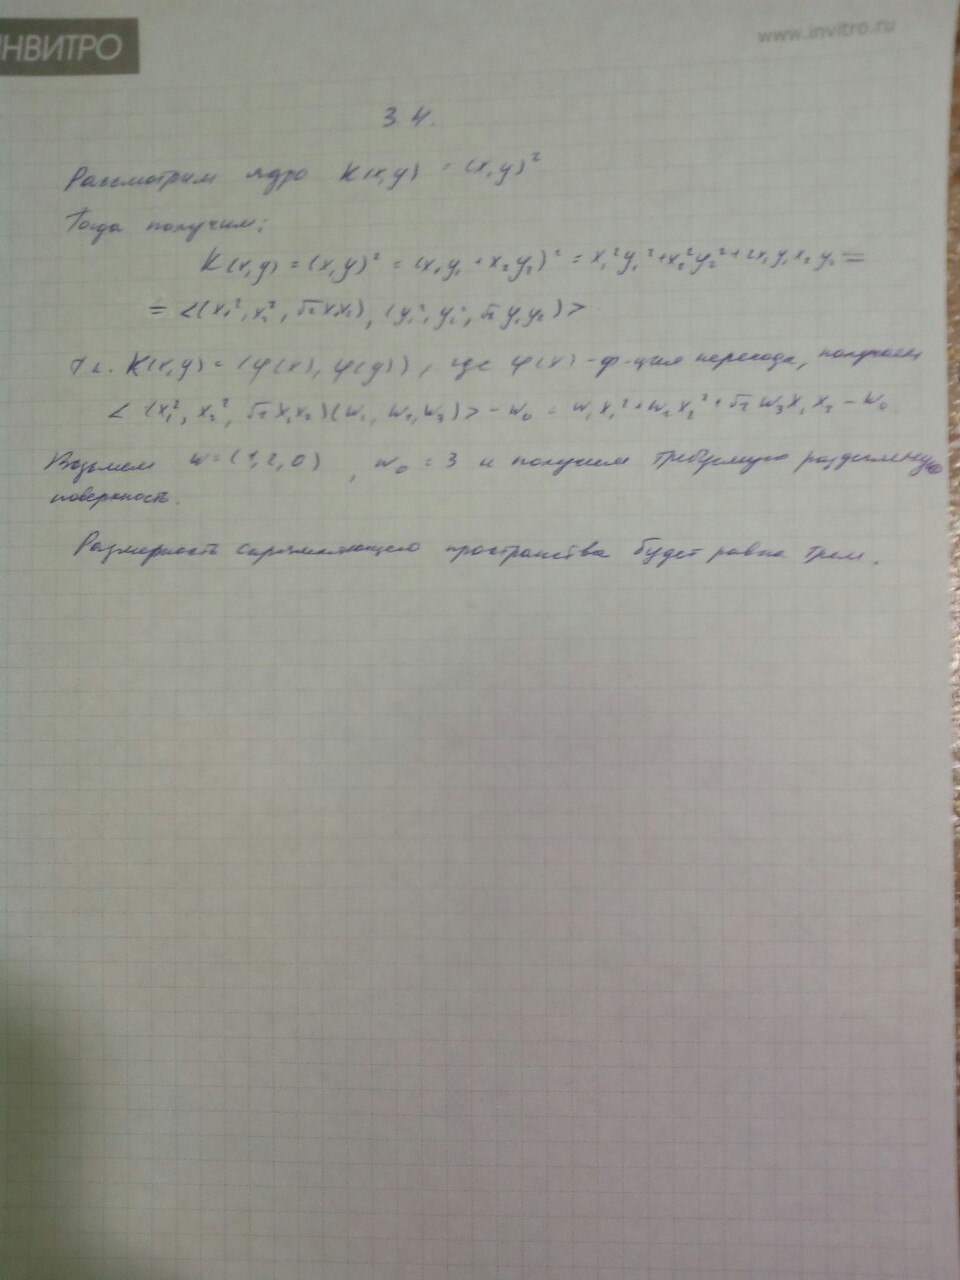 ИНВИТРО
www.invitro.ru
34.
Рассмотрим ядро K(x,y) = (x,y)²
Тогда получим:
K(x,y) = (x,y)² = (x₁y₁ + x₂y₂)² = x₁²y₁² + x₂²y₂² + 2x₁y₁x₂y₂ =
= <(x₁², x₂², √2x₁x₂), (y₁², y₂², √2y₁y₂)>
Т.к. K(x,y) = (φ(x), φ(y)), где φ(x) - ф-ция перехода, получаем
< (x₁², x₂², √2x₁x₂)(w₁, w₂, w₃) > - w₀ = w₁x₁² + w₂x₂² + √2w₃x₁x₂ - w₀
Возьмем w = (1,2,0), w₀ = 3 и получим требуемую разделяющую
поверхность.
Размерность спрямляющего пространства будет равна трем.